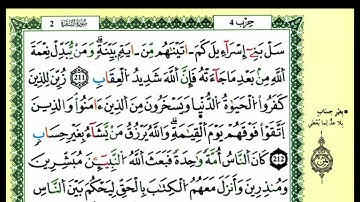 2 سُورَةُ الْبَقَرَةِ
حِزْب 4
سَلْ بَنِي إِسْرَاءِيلَ كَمَ ـاتَيْنَاهُم مِّنَ ـايَةٍ بَيِّنَةٍ وَمَنْ يُّبَدِّلْ نِعْمَةَ
اَللَّهِ مِنْ بَعْدِ مَا جَاءَتْهُ فَإِنَّ اَللَّهَ شَدِيدُ اُلْعِقَابِ 211 زُيِّنَ لِلذِينَ
كَفَرُوا اُلْحَيَوٰةُ اُلدُّنْيَا وَيَسْخَرُونَ مِنَ اَلذِينَ ءَامَنُوا وَالذِينَ
اَتَّقَوْا فَوْقَهُمْ يَوْمَ اَلْقِيَٰمَةِ وَاللَّهُ يَرْزُقُ مَنْ يَّشَاءُ بِغَيْرِ حِسَابٍ
212 كَانَ اَلنَّاسُ أُمَّةً وَٰحِدَةً فَبَعَثَ اَللَّهُ اُلنَّبِيـِٕينَ مُبَشِّرِينَ
وَمُنذِرِينَ وَأَنزَلَ مَعَهُمُ اُلْكِتَٰبَ بِالْحَقِّ لِيَحْكُمَ بَيْنَ اَلنَّاسِ
بِغَيْرِ حِسَابٍ
بلا عدٍّ لما يُعْطِي